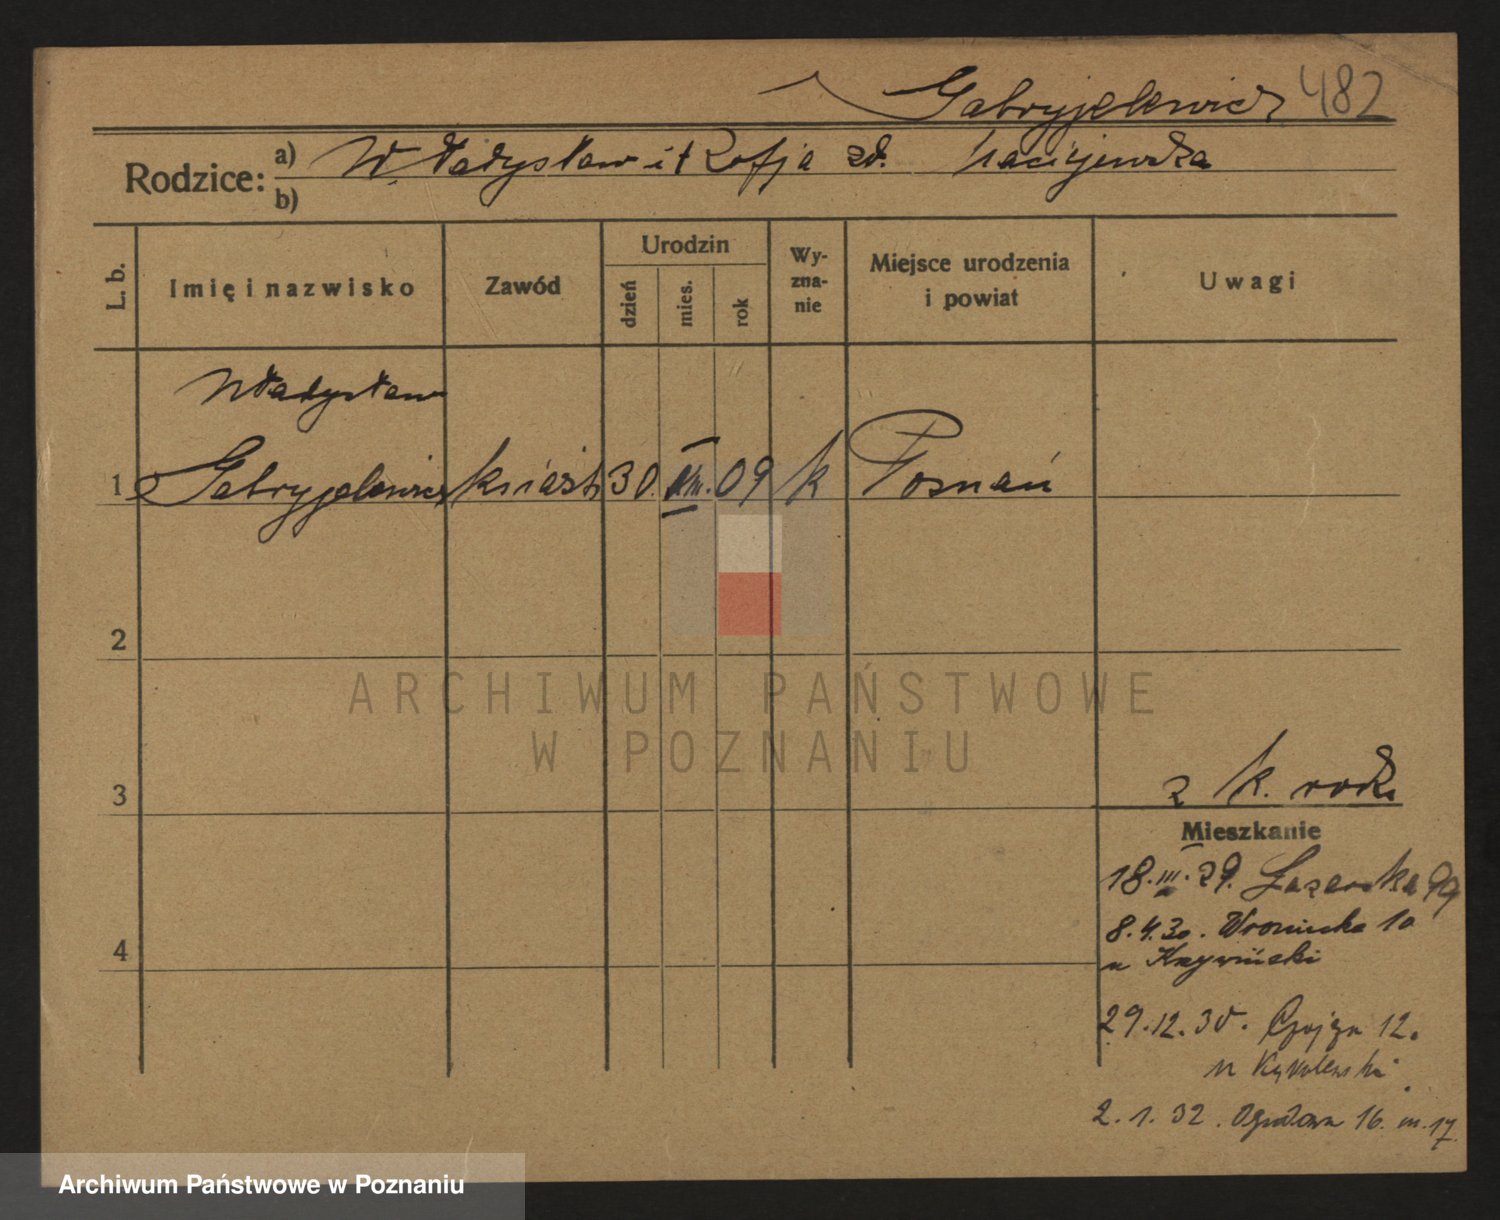 Gabryjelewicz 482
Rodzice: a) Władysław i † Zofja zd. Maciejewska
b)
L. b. Imię i nazwisko Zawód Urodzin dzień mies. rok Wy-zna-nie Miejsce urodzenia i powiat Uwagi
Władysław
1 Gabryjelewicz 30. VIII. 09 k Poznań
2
3
z k. rodz.
Mieszkanie
18. III. 29. Łazarska
8.4.30. Wroniecka 10
u Krzywiński
4
29.12.30. 12.
u
2.1.32. Ogrodowa 16. m. 17.
ARCHIWUM PAŃSTWOWE
W POZNANIU
Archiwum Państwowe w Poznaniu